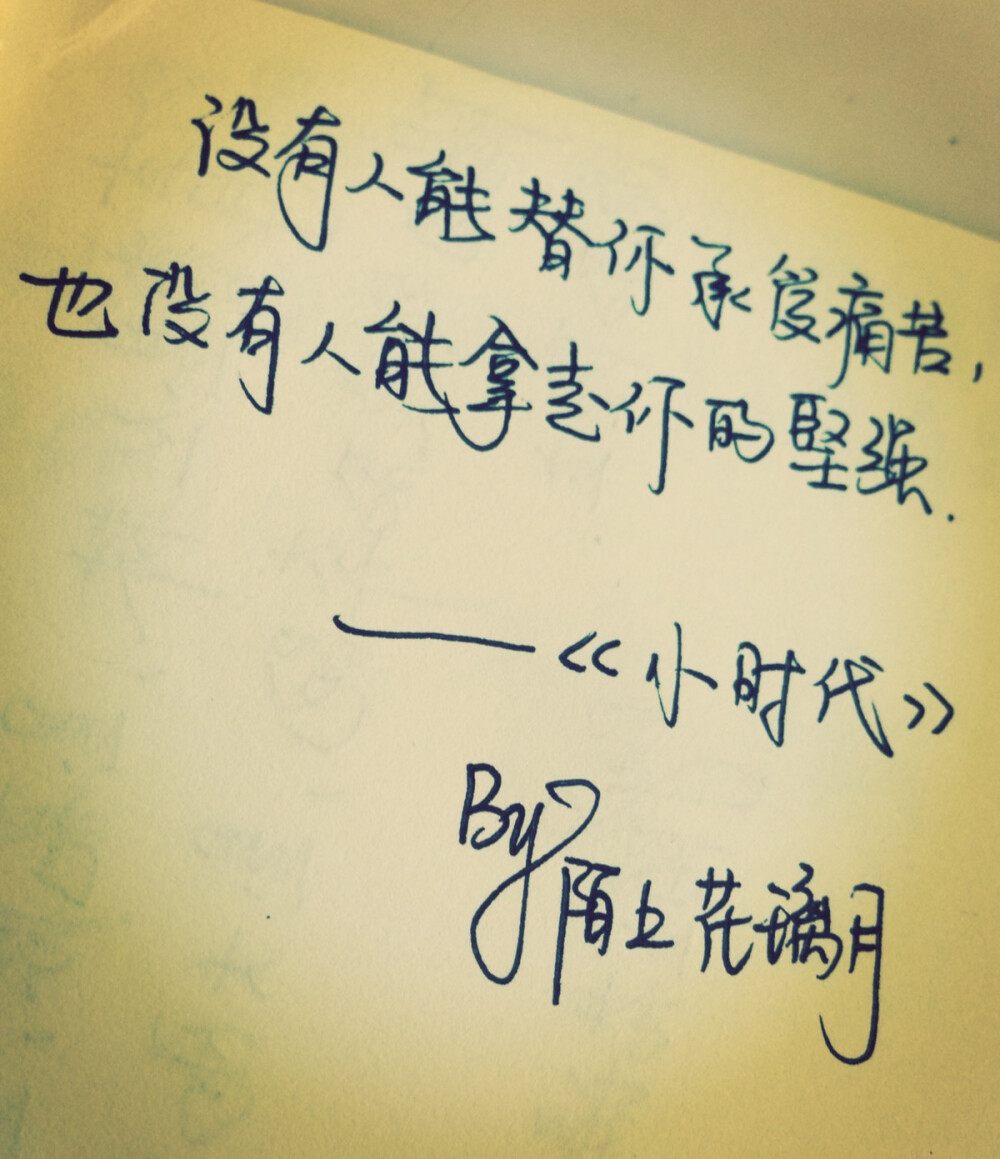 没有人能替你承受痛苦,
也没有人能拿去你的坚强.
——《小时代》
By陌上花璃月